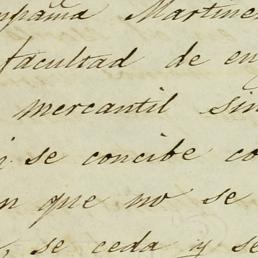 Martinez
facultad de en
mercantil sin
se concibe co
n que no se
, se ceda y se